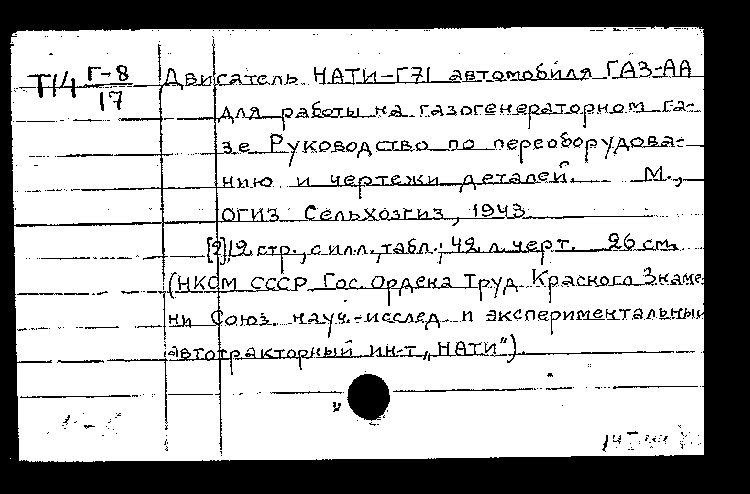 Т14 Г-8/17 Двигатель НАТИ-Г71 автомобиля ГАЗ-АА
для работы на газогенераторном га-
зе Руководство по переоборудова-
нию и чертежи деталей. М.,
ОГИЗ Сельхозгиз, 1943.
[2],12 стр., с илл., табл.; 42 л. черт. 26 см.
(НКСМ СССР Гос. Ордена Труд Красного Знаме-
ни Союз. науч.-исслед и экспериментальный
автотракторный ин-т „НАТИ").